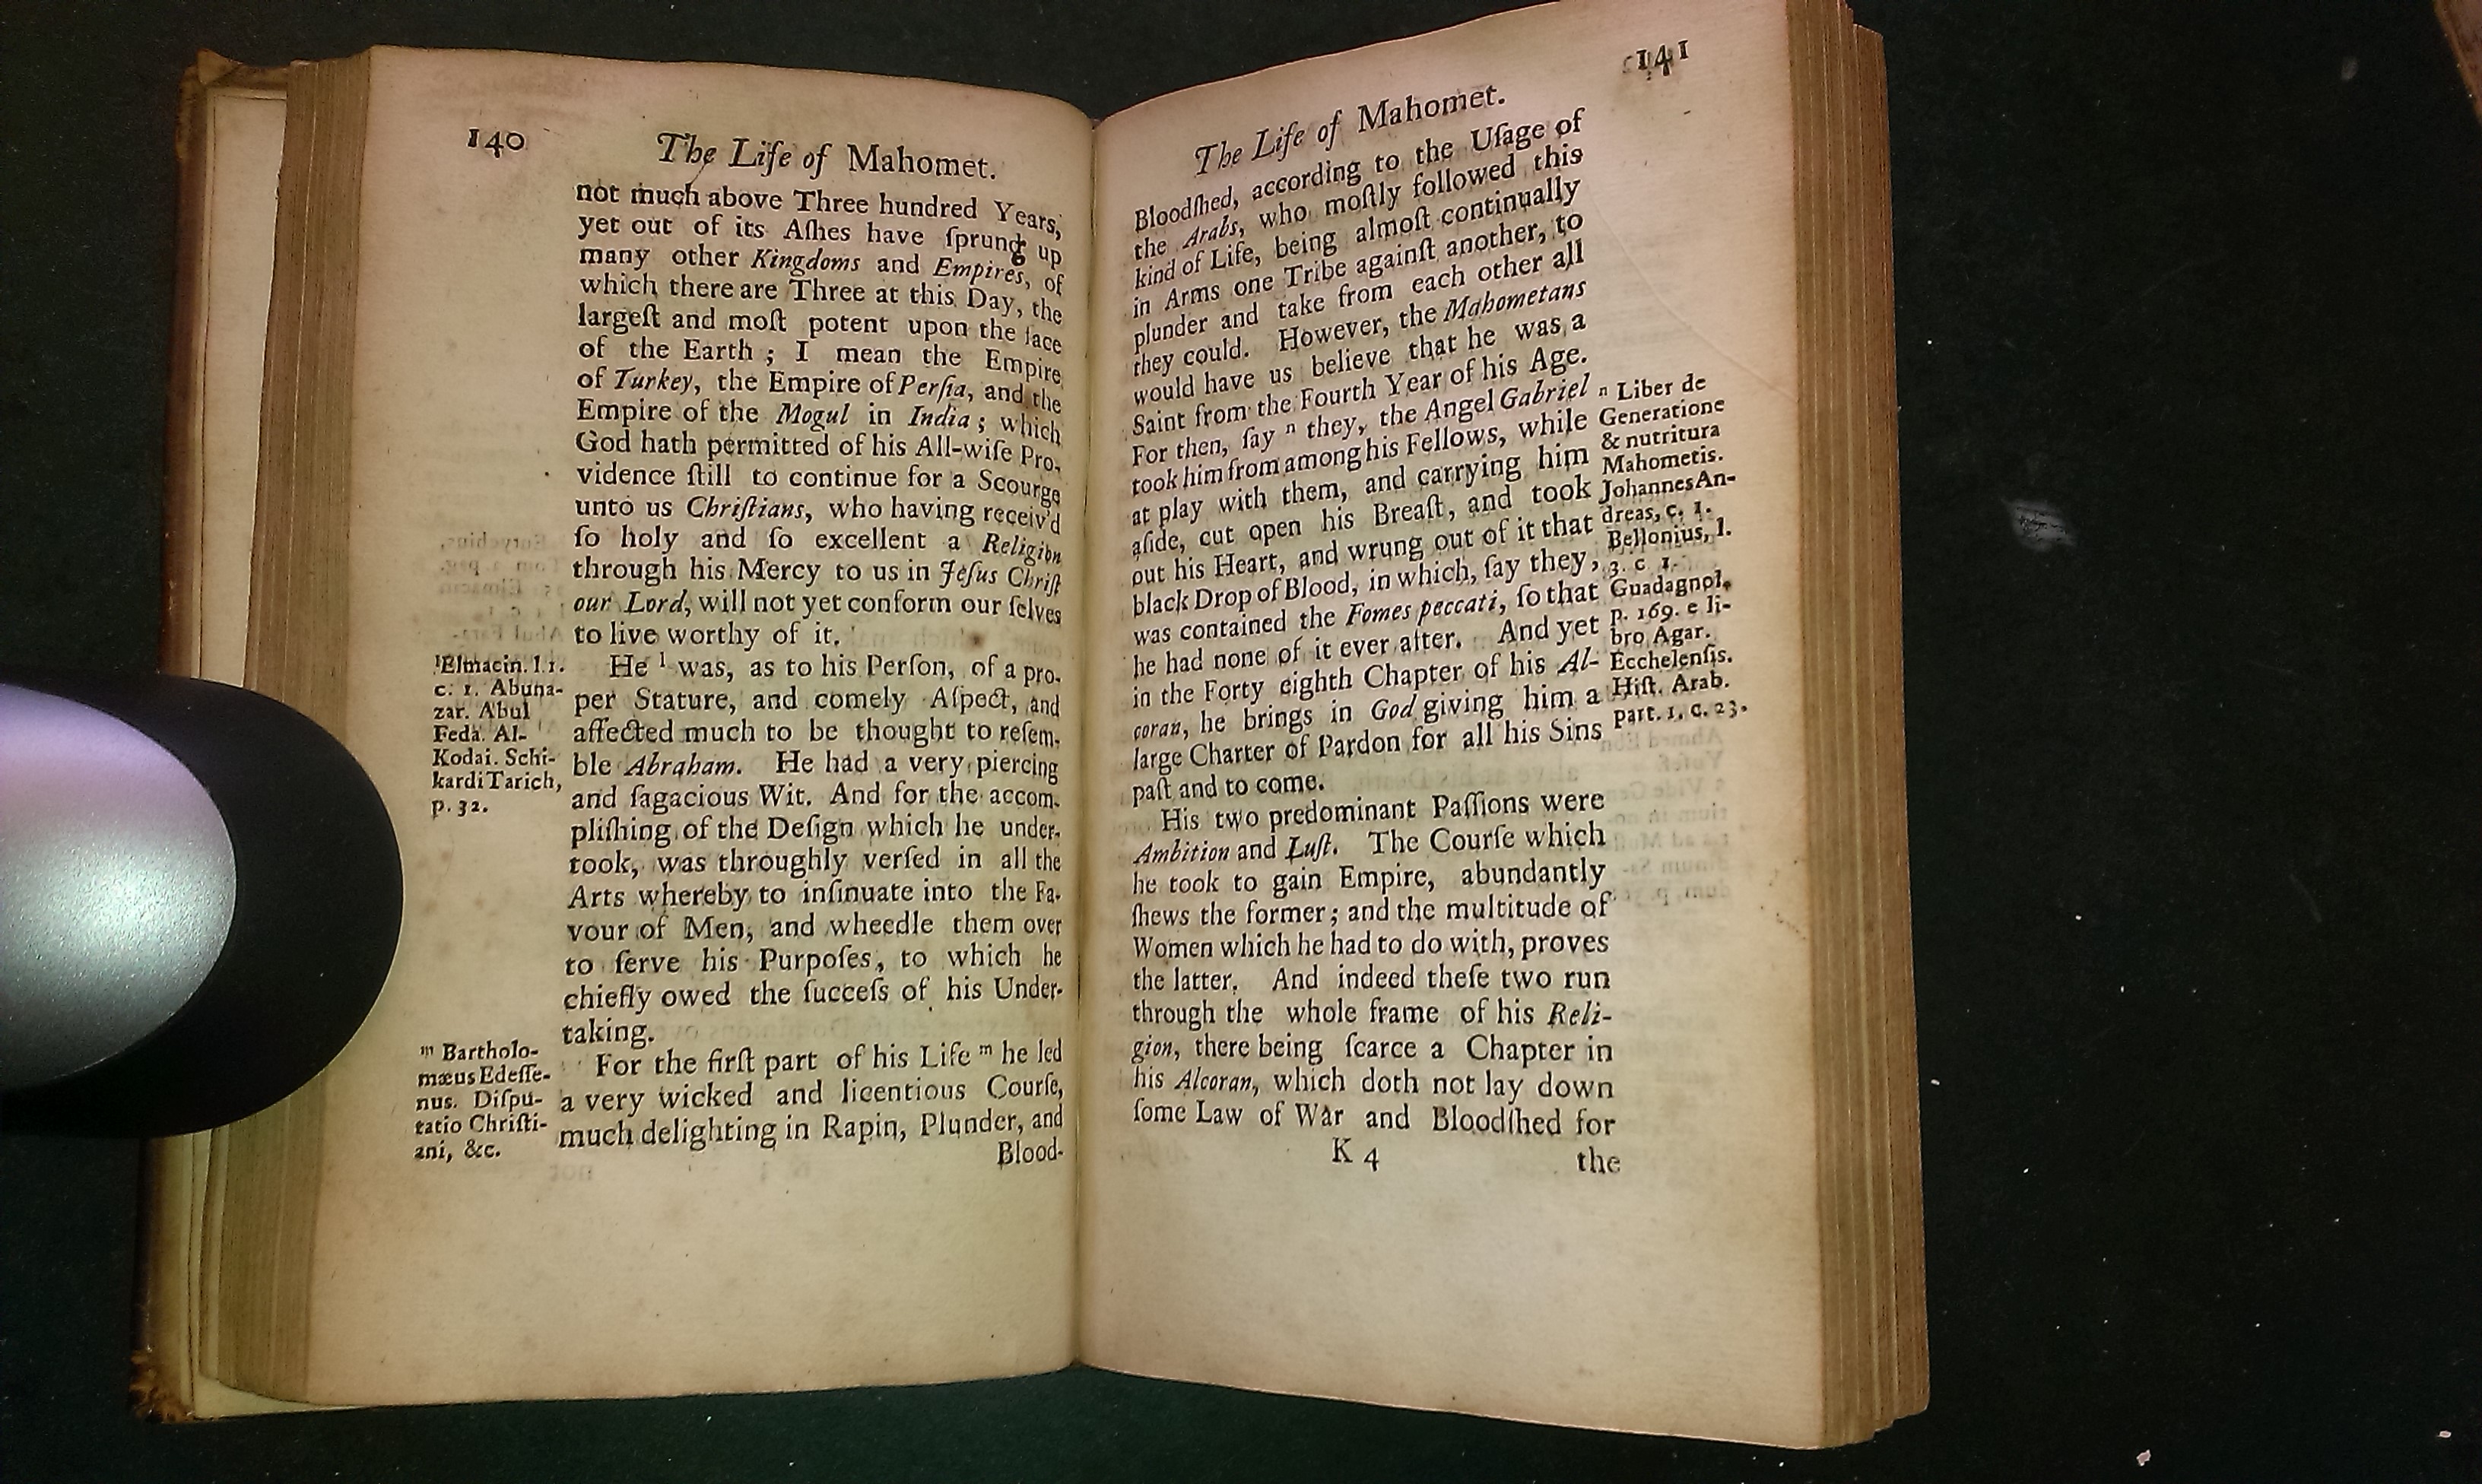 140
The Life of Mahomet.
not much above Three hundred Years,
yet out of its Aſhes have ſprung up
many other Kingdoms and Empires, of
which there are Three at this Day, the
largeſt and moſt potent upon the face
of the Earth ; I mean the Empire
of Turkey, the Empire of Perſia, and the
Empire of the Mogul in India ; which
God hath permitted of his All-wiſe Pro-
vidence ſtill to continue for a Scourge
unto us Chriſtians, who having receiv'd
ſo holy and ſo excellent a Religion
through his Mercy to us in Jeſus Chriſt
our Lord, will not yet conform our ſelves
to live worthy of it.
He l was, as to his Perſon, of a pro-
per Stature, and comely Aſpect, and
affected much to be thought to reſem-
ble Abraham. He had a very piercing
and ſagacious Wit. And for the accom-
pliſhing of the Deſign which he under-
took, was throughly verſed in all the
Arts whereby to inſinuate into the Fa-
vour of Men, and wheedle them over
to ſerve his Purpoſes, to which he
chiefly owed the ſucceſs of his Under-
taking.
For the firſt part of his Life m he led
a very wicked and licentious Courſe,
much delighting in Rapin, Plunder, and
Blood-
l Elmacin. l. 1.
c. 1. Abuna-
zar. Abul
Feda. Al-
Kodai. Schi-
kardi Tarich,
p. 32.
m Bartholo-
mæus Edeſſe-
nus. Diſpu-
tatio Chriſti-
ani, &c.
141
The Life of Mahomet.
Bloodſhed, according to the Uſage of
the Arabs, who moſtly followed this
kind of Life, being almoſt continually
in Arms one Tribe againſt another, to
plunder and take from each other all
they could. However, the Mahometans
would have us believe that he was a
Saint from the Fourth Year of his Age.
For then, ſay n they, the Angel Gabriel
took him from among his Fellows, while
at play with them, and carrying him
aſide, cut open his Breaſt, and took
out his Heart, and wrung out of it that
black Drop of Blood, in which, ſay they,
was contained the Fomes peccati, ſo that
he had none of it ever after. And yet
in the Forty eighth Chapter of his Al-
coran, he brings in God giving him a
large Charter of Pardon for all his Sins
paſt and to come.
His two predominant Paſſions were
Ambition and Luſt. The Courſe which
he took to gain Empire, abundantly
ſhews the former ; and the multitude of
Women which he had to do with, proves
the latter. And indeed theſe two run
through the whole frame of his Reli-
gion, there being ſcarce a Chapter in
his Alcoran, which doth not lay down
ſome Law of War and Bloodſhed for
K 4
the
n Liber de
Generatione
& nutritura
Mahometis.
Johannes An-
dreas, c. 1.
Bellonius, l.
3. c 1.
Guadagnol,
p. 169. e li-
bro Agar.
Ecchelenſis.
Hiſt. Arab.
part. 1, c. 23.